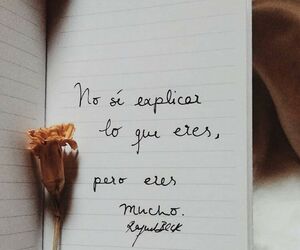 No sé explicar
lo que eres,
pero eres
mucho.